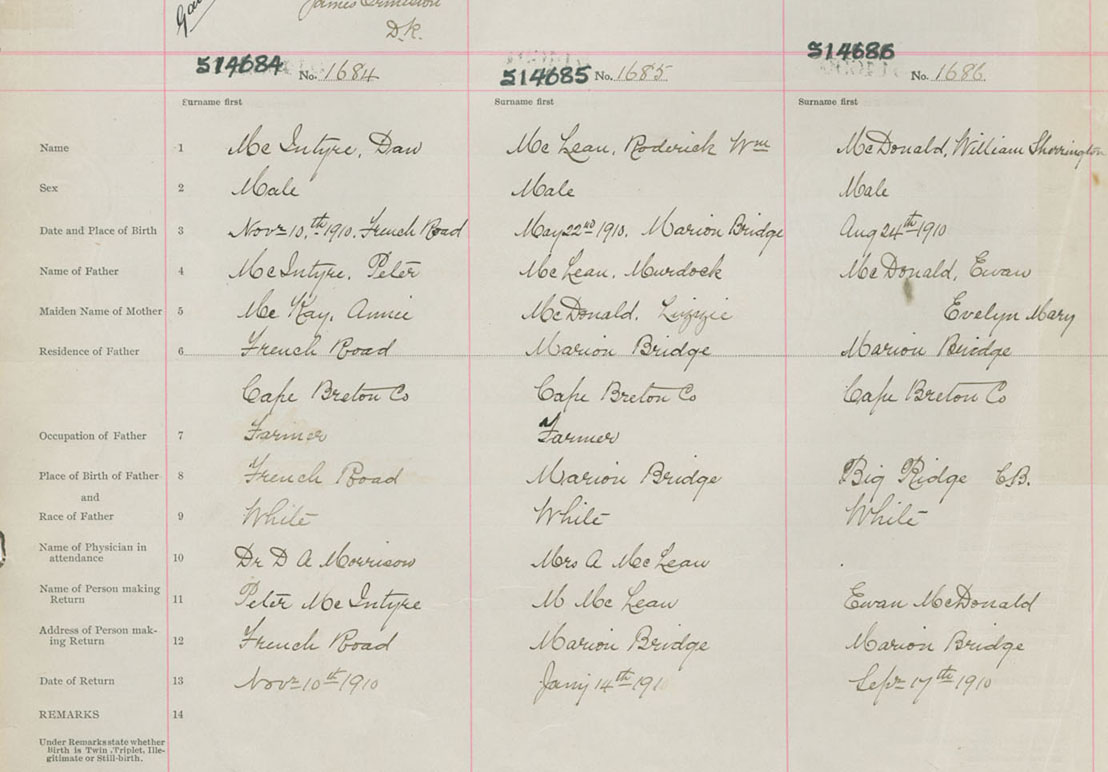 James Ormiston
D.R.
514684 No. 1684
514685 No. 1685
514686 No. 1686
Surname first Surname first Surname first
Name 1 Mc Intyre, Dan Mc Lean, Roderick Wm McDonald, William Sherrington
Sex 2 Male Male Male
Date and Place of Birth 3 Novr 10th 1910. French Road May 22nd 1910. Marion Bridge Aug 24th 1910
Name of Father 4 McIntyre, Peter Mc Lean, Murdock McDonald, Ewan
Maiden Name of Mother 5 Mc Kay, Annie McDonald, Lizzie Evelyn Mary
Residence of Father 6 French Road Marion Bridge Marion Bridge
Cape Breton Co Cape Breton Co Cape Breton Co
Occupation of Father 7 Farmer Farmer
Place of Birth of Father 8 French Road Marion Bridge Big Ridge C.B.
and
Race of Father 9 White White White
Name of Physician in
attendance 10 Dr D A Morrison Mrs A McLean
Name of Person making
Return 11 Peter Mc Intyre M Mc Lean Ewan McDonald
Address of Person mak-
ing Return 12 French Road Marion Bridge Marion Bridge
Date of Return 13 Novr 10th 1910 Jany 14th 191 Sepr 17th 1910
REMARKS 14
Under Remarks state whether
Birth is Twin, Triplet, Ille-
gitimate or Still-birth.